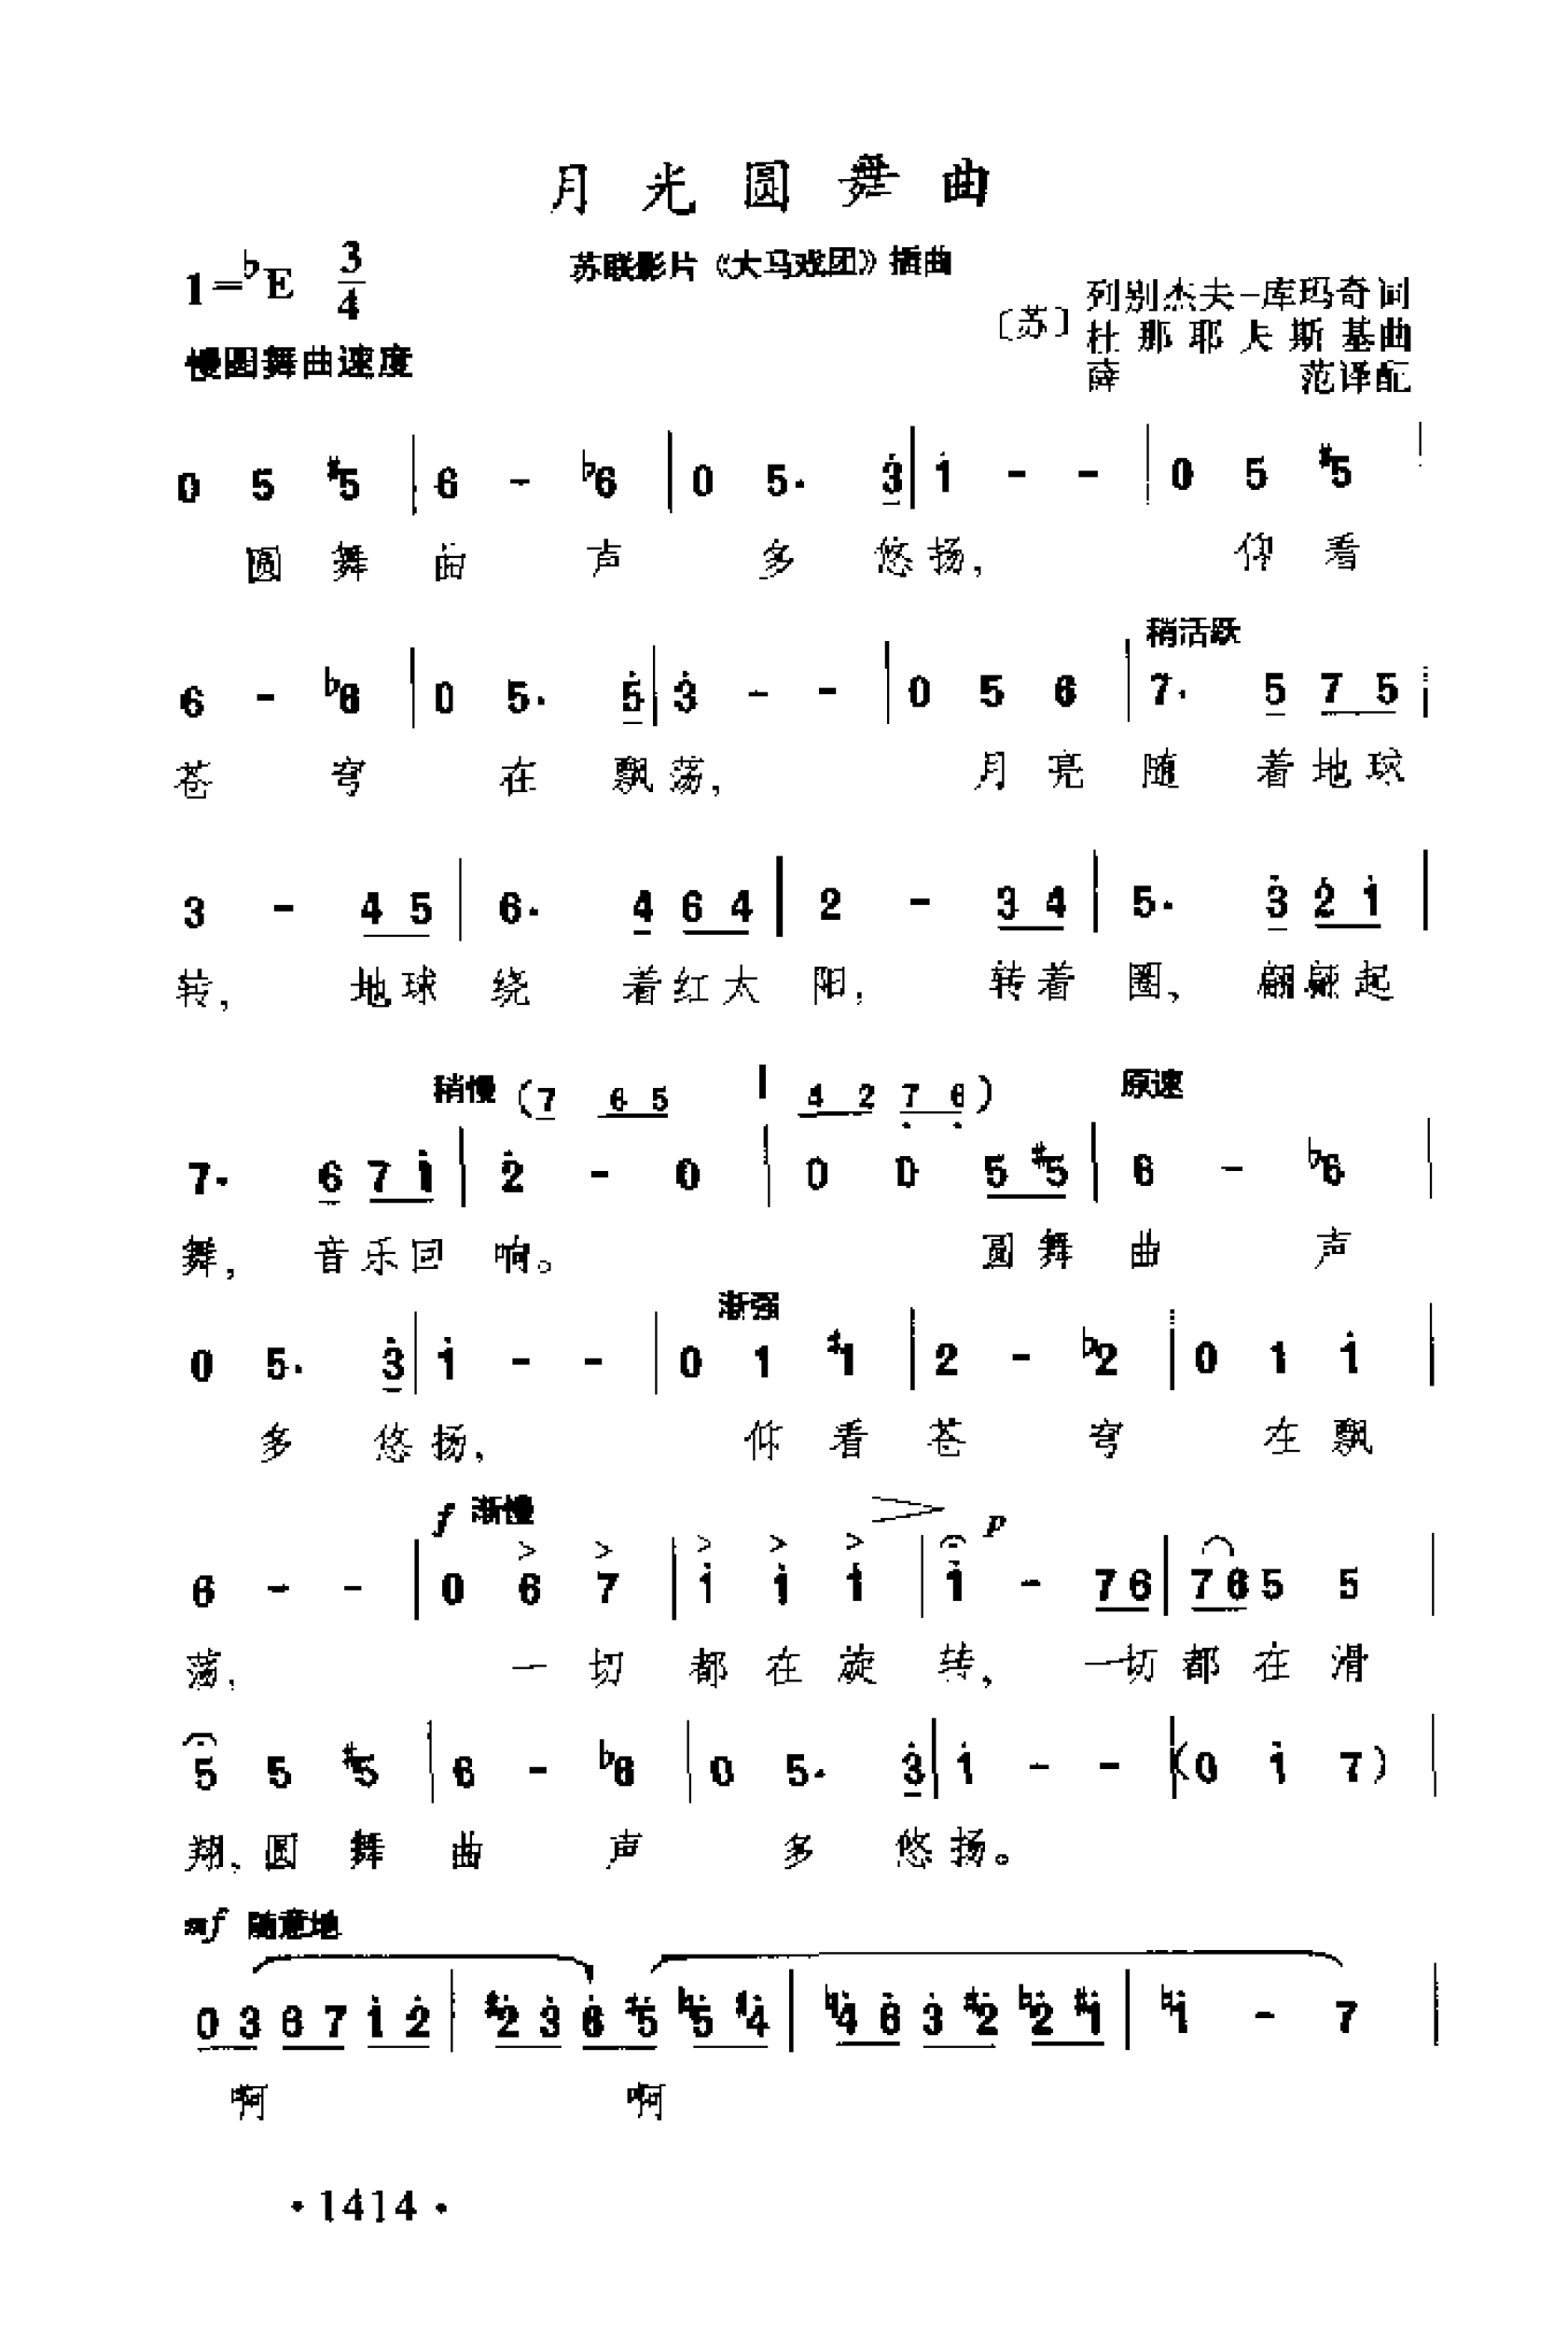 月光圆舞曲
苏联影片《大马戏团》插曲
1=♭E 3/4
慢圆舞曲速度
〔苏〕列别杰夫-库玛奇词
杜那耶夫斯基曲
薛范译配
0 5 #5 | 6 - ♭6 | 0 5. 3̇ | 1̇ - - | 0 5 #5 |
圆舞曲声多悠扬,仰看
稍活跃
6 - ♭6 | 0 5. 5̇ | 3̇ - - | 0 5 6 | 7. 5 7 5 |
苍穹在飘荡,月亮随着地球
3 - 4 5 | 6. 4 6 4 | 2 - 3 4 | 5. 3̇ 2̇ 1̇ |
转,地球绕着红太阳,转着圈、翩翩起
稍慢 (7 6 5 | 4 2 7̣ 6̣) 原速
7. 6 7 1̇ | 2̇ - 0 | 0 0 5 #5 | 6 - ♭6 |
舞,音乐回响。圆舞曲声
渐强
0 5. 3̇ | 1̇ - - | 0 1 #1 | 2 - ♭2 | 0 1 1̇ |
多悠扬,仰看苍穹在飘
f 渐慢 > p
6 - - | 0 6 7 | 1̇ 1̇ 1̇ | 1̇ - 7 6 | 7 6 5 5 |
荡,一切都在旋转,一切都在滑
5 5 #5 | 6 - ♭6 | 0 5. 3̇ | 1̇ - - | (0 1̇ 7) |
翔、圆舞曲声多悠扬。
mf 随意地
0 3 6 7 1̇ 2̇ | #2̇ 3̇ 6̇ #5̇ ♮5̇ #4̇ | ♮4̇ 6̇ 3̇ #2̇ ♮2̇ #1̇ | ♮1̇ - 7 |
啊 啊
·1414·